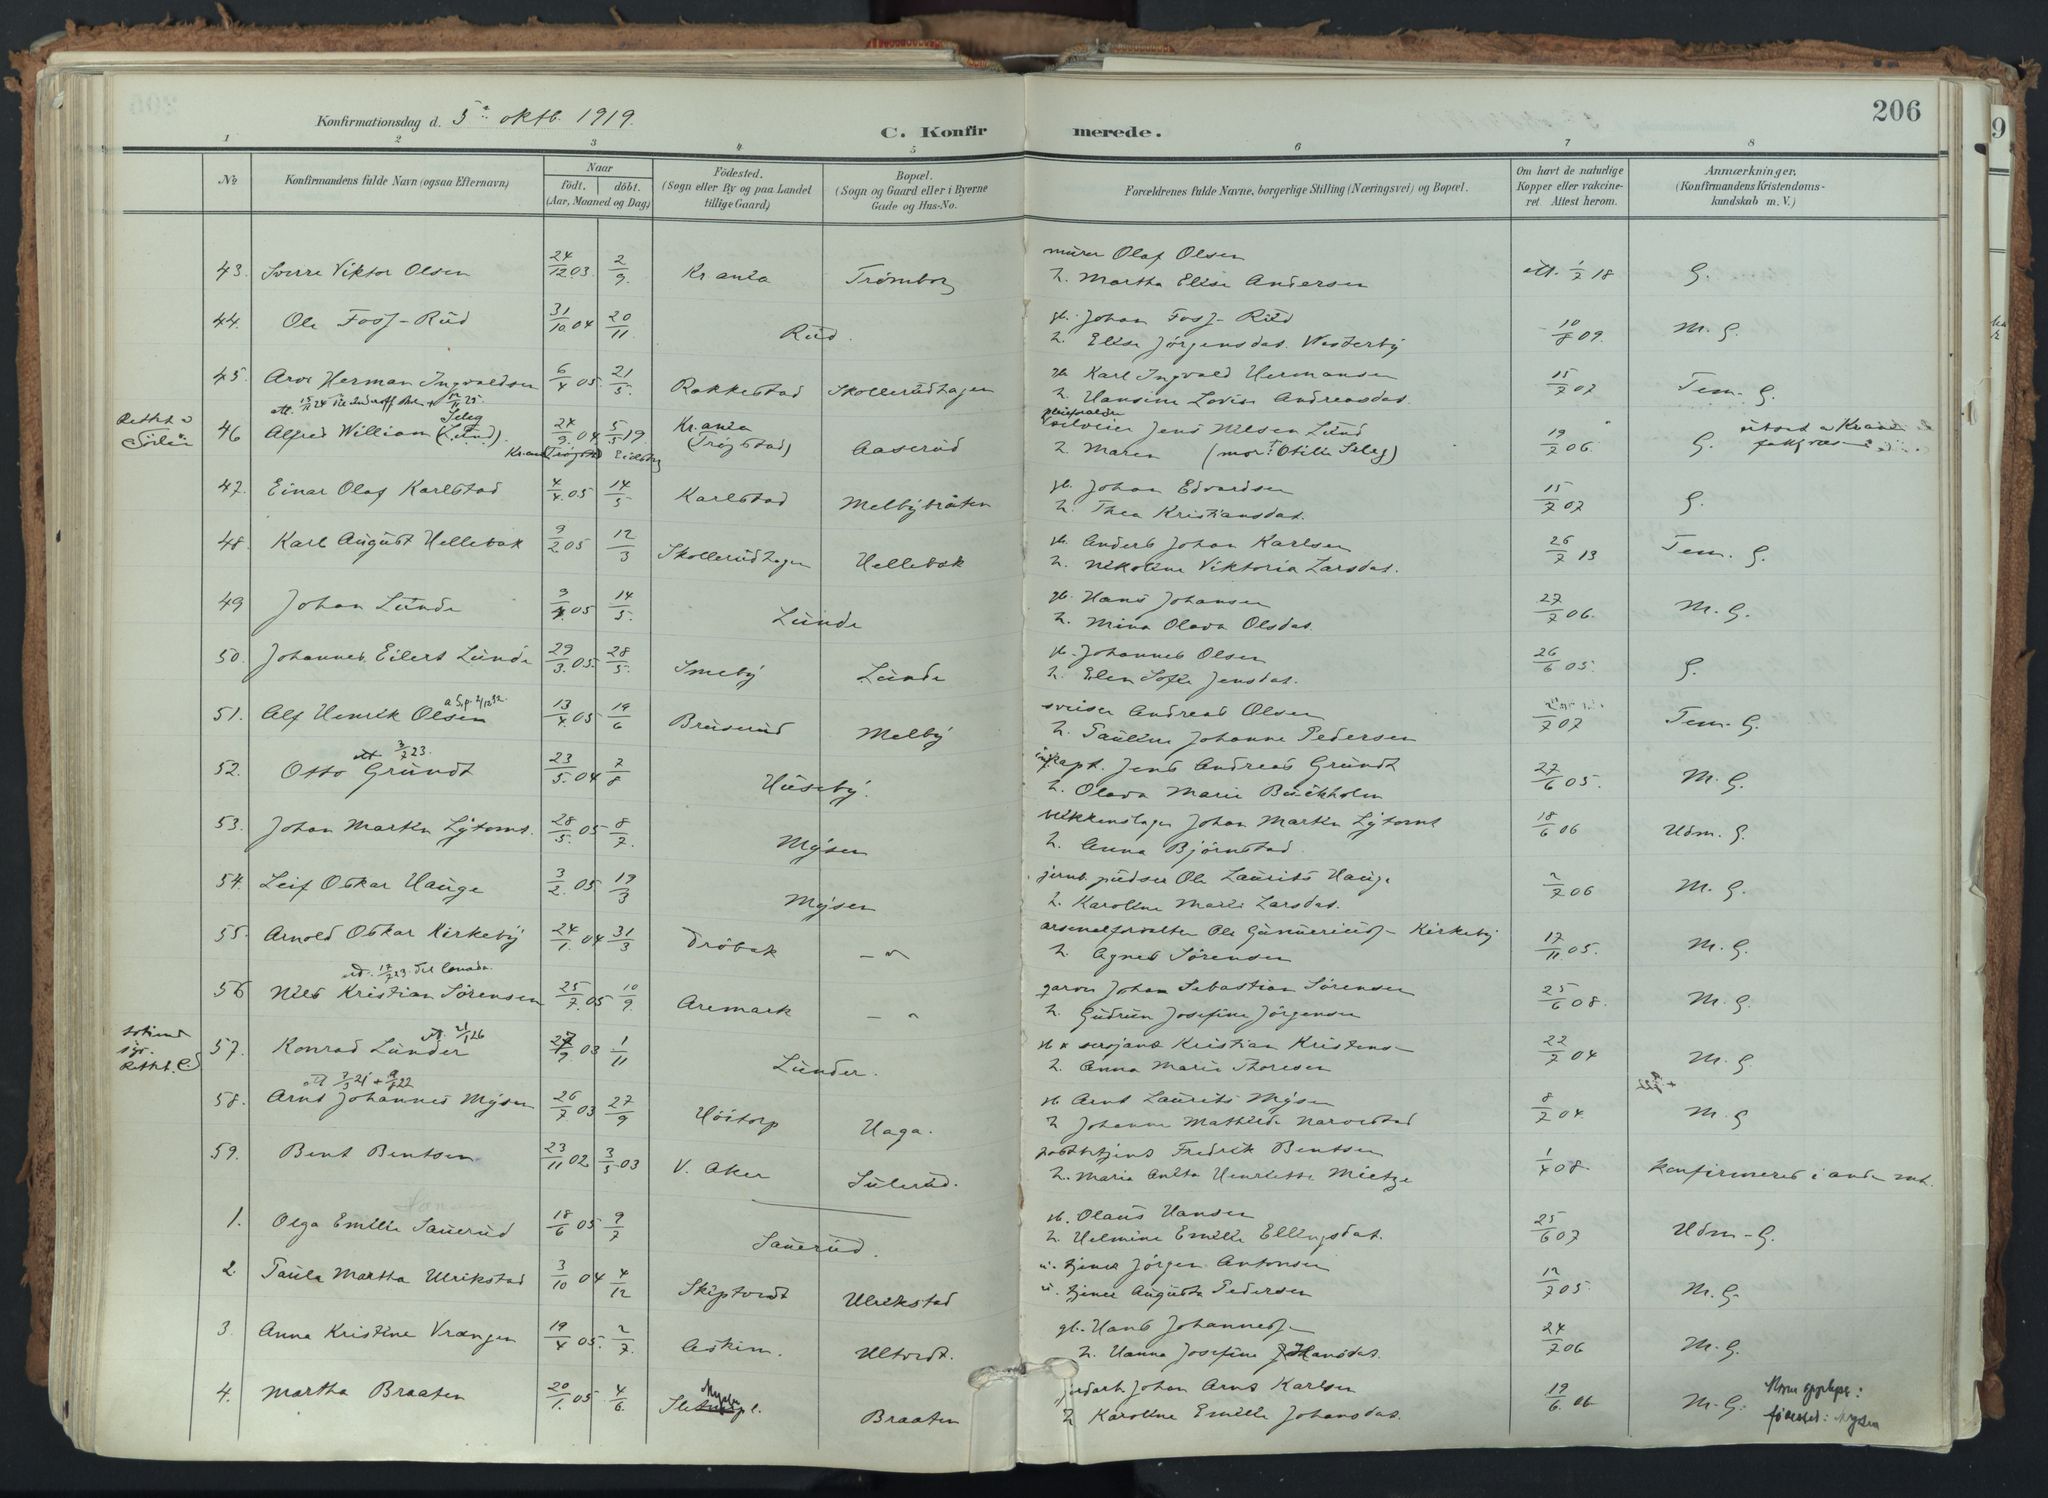 206
Konfirmationsdag d. 5te oktb. 1919.
C. Konfirmerede.
1 2 3 4 5 6 7 8
No
Konfirmandens fulde Navn (ogsaa Efternavn)
Naar
födt. döbt.
(Aar, Maaned og Dag)
Födested.
(Sogn eller By og paa Landet
tillige Gaard)
Bopæl.
(Sogn og Gaard eller i Byerne
Gade og Hus-No.
Forældrenes fulde Navne, borgerlige Stilling (Næringsvei) og Bopæl.
Om havt de naturlige
Kopper eller vakcine-
ret. Attest herom.
Anmærkninger.
(Konfirmandens Kristendoms-
kundskab m. V.)
43. Sverre Viktor Olsen 24/12 03. 2/9. Kr.ania Trømborg murer Olaf Olsen
h. Martha Elise Andersen att. 1/7 18 G.
44. Ole Foss-Rud 31/10 04 20/11. Rud. gb. Johan Foss-Rud
h. Elise Jörgensdat. Westerby 10/8 09. M. G.
45. Arve Herman Ingvaldsen 6/4 05. 21/5. Rakkestad Skollerudhagen gb. Karl Ingvald Hermansen
h. Hansine Lovise Andreasdat. 15/7 07 Tem. G.
46 Alfred William (Lund). Seleg 24/9. 04 5/5 19. Kr.ania (Trögstad) Aaserud pleieforældre Jens Nilsen Lund
h. Maren (mor: Otilie Seleg) 19/7 06. G.
47. Einar Olaf Karlstad 4/4. 05 14/5 Karlstad Melbybråten gb. Johan Edvardsen
h. Thea Kristiansdat. 15/7 07 G.
48. Karl August Hellebæk 9/2 05 12/3 Skollerudhagen Hellebæk gb. Anders Johan Karlsen
h. Nikoline Viktoria Larsdat. 26/7 13 Tem. G.
49 Johan Lunde 3/4. 05 14/5. Lunde gb. Hans Johansen
h. Mina Olava Olsdat. 27/7 06. M. G.
50. Johannes Eilert Lunde 29/3. 05. 28/5. Smeby Lunde gb. Johannes Olsen
h. Elen Sofie Jensdat. 26/6 05. G.
51. Alf Henrik Olsen 13/4. 05 19/6 Bruserud Melby sveiser Andreas Olsen
h. Pauline Johanne Pedersen /7 07 Tem. G.
52. Otto Grundt att 3/2 23. 23/5. 04 7/8 Huseby. kapt. Jens Andreas Grundt
h. Olava Marie Buckholm 27/6 05. M. G.
53. Johan Martin Lytomt. 28/5. 05 8/7. Mysen blikkenslager Johan Martin Lytomt
h. Anna Björnstad. 18/6 06 Udm. G.
54. Leif Oskar Hauge 3/2. 05. 19/3 Mysen jernb. pudser Ole Laurits Hauge
h. Karoline Marie Larsdat. 2/7 06 M. G.
55. Arnold Oskar Kirkeby 24/1. 04 31/3 Dröbak – " – arsenalforvalter Ole Gunneriuss. Kirkeby
h. Agnes Sörensen 17/11 05. M. G.
56 Nils Kristian Sörensen ut. 17/2 23 til Canada. 25/7. 05 10/9. Aremark – " garver Johan Sebastian Sörensen
h. Gudrun Josefine Jörgensen 25/6 08. M. G.
57. Konrad Lunder 27/9 03 1/11 Lunder. gb & sersjant Kristian Kristens.
h. Anna Marie Thoresen 22/7 04 M. G.
58. Arnt Johannes Mysen 26/7 03 27/9 Höitorp Haga. gb. Arnt Laurits Mysen
h Johanne Mathilde Narvestad 8/7 04 M. G
59. Bent Bentsen 23/11 02 3/5 03 V. Aker Sulerud. Fredrik Bentsen
h. Maria Anita Henriette Mietze 1/4 08. konfirmeres i anden mt.
1. Olga Emilie Sauerud 18/6 05 9/7 Sauerud. gb. Olaus Hansen
h. Helmine Emilie Ellingsdat. 25/6 07 Udm – G.
2. Paula Martha Ulrikstad 3/10 04 4/12 Skiptvedt Ulrikstad u. tjener Jörgen Antonsen
u. tjener Augusta Pedersen 12/7 05. M. G.
3. Anna Kristine Vrangen 19/4 05. 2/7. Askim. Ultvedt. gb. Hans Johanness.
h. Hanna Josefine Hansdat. 24/7 06 M. G.
4. Martha Braaten 20/1. 05 4/6. Mysen Braaten jordarb. Johan Arnt Karlsen
h Karoline Emilie Johansdat. 19/6. 06 M. G. Moren opplyser:
födested: Mysen